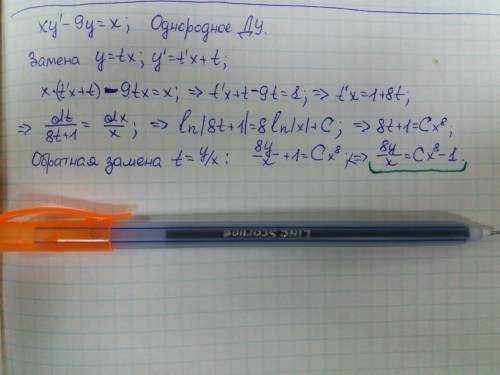 xy' - 9y = x; Однородное ДУ.
Замена y = tx; y' = t'x + t;
x·(t'x + t) - 9tx = x; ⇒ t'x + t - 9t = 1; ⇒ t'x = 1 + 8t;
⇒ dt/(8t+1) = dx/x; ⇒ ln|8t+1| = 8 ln|x| + C; ⇒ 8t + 1 = Cx⁸;
Обратная замена t = y/x: 8y/x + 1 = Cx⁸; ⇒ 8y/x = Cx⁸ - 1.
LINC Scorline